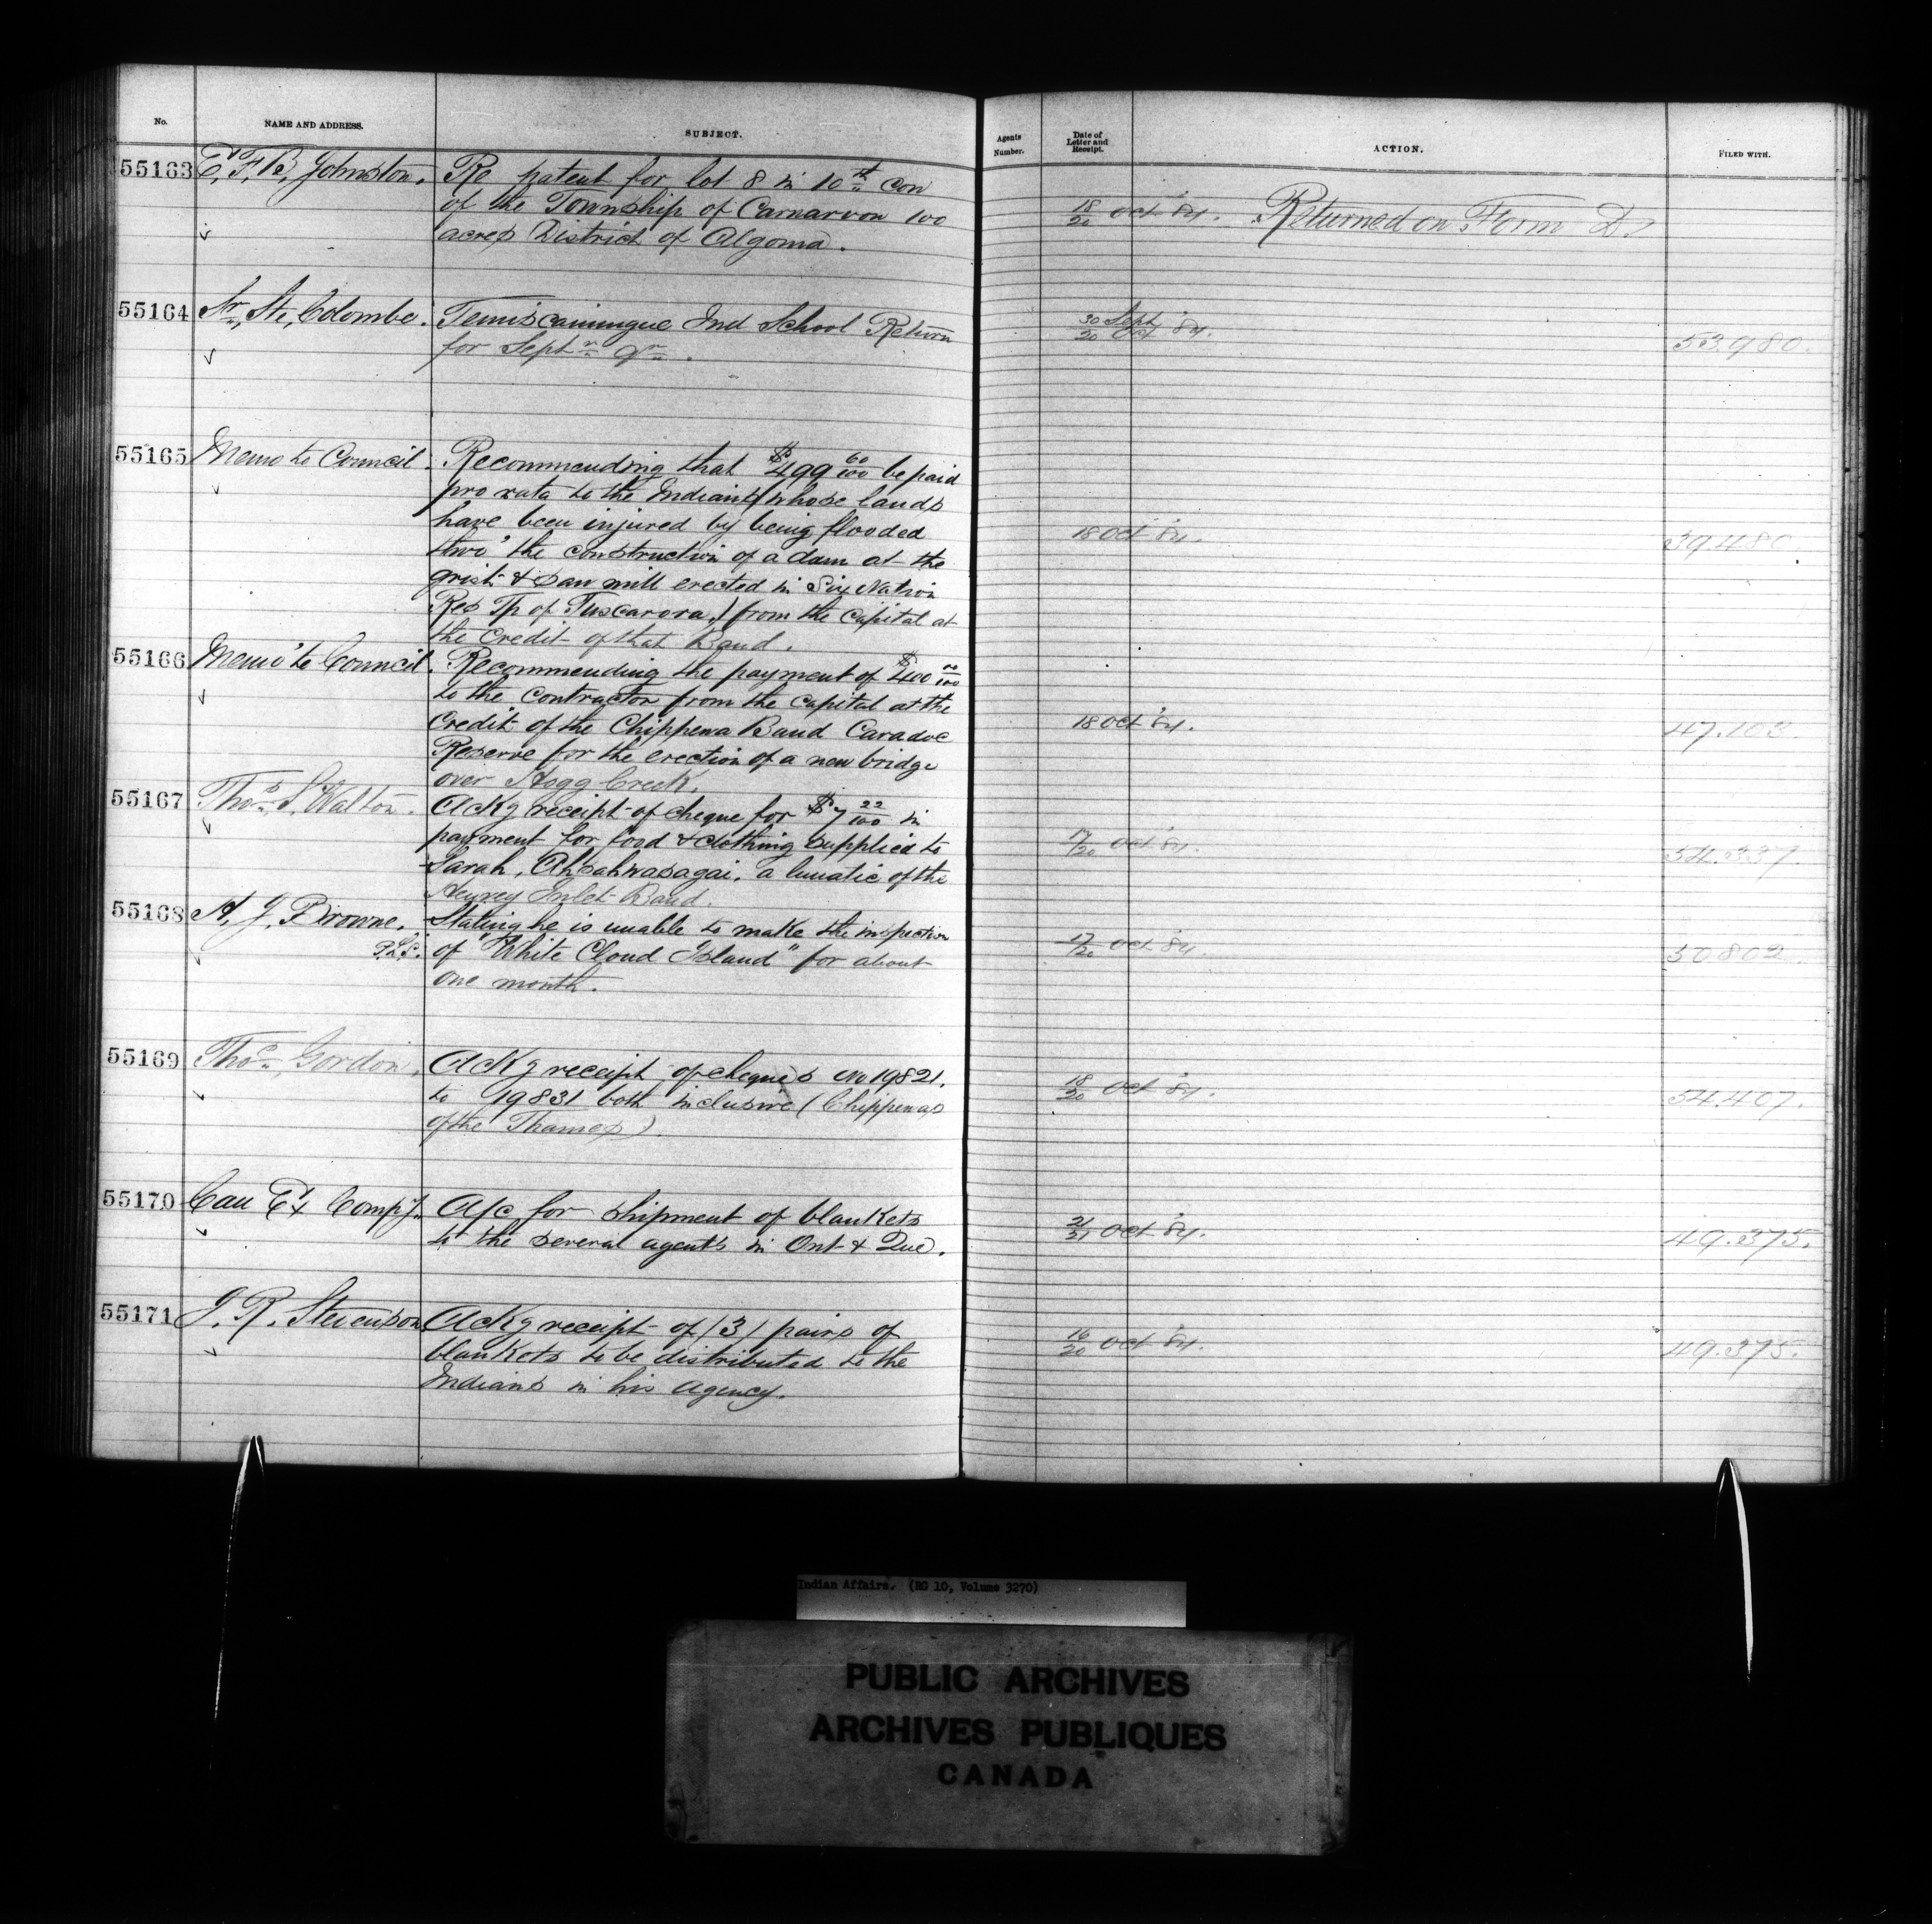 No.
NAME AND ADDRESS.
SUBJECT.
Agents Number.
Date of Letter and Receipt.
ACTION.
FILED WITH.
55163
E. F. B. Johnston.
Re patent for lot 8 in 10th con
of the Township of Carnarvon 100
acres District of Algoma.
18/20 Oct '84.
Returned on Form D.
55164
Sr. Ste. Colombe.
Temiscamingue Ind School Return
for Septr Qr.
30 Sept
20 Oct '84.
53.980.
55165
Memo to Council.
Recommending that $499 60/100 be paid
pro rata to the Indians (whose lands
have been injured by being flooded
thro' the construction of a dam at the
grist & saw mill erected in Six Nation
Res Tp of Tuscarora,) from the Capital at
the Credit of that Band.
18 Oct '84.
39.480.
55166
Memo to Council.
Recommending the payment of $400 00/100
to the Contractor from the Capital at the
Credit of the Chippewa Band Caradoc
Reserve for the erection of a new bridge
over Hogg Creek.
18 Oct '84.
47.103.
55167
Thos. S. Walton.
Ackg receipt of cheque for $7 22/100 in
payment for food & clothing supplied to
Sarah, Ahsahwasagai, a lunatic of the
Henvey Inlet Band.
17/20 Oct '84.
54.337.
55168
H. J. Browne.
P.L.S.
Stating he is unable to make the inspection
of "White Cloud Island" for about
one month.
17/20 Oct '84.
30802.
55169
Thos. Gordon.
Ackg receipt of cheques No 19821.
to 19831 both inclusive (Chippewas
of the Thames).
18/20 Oct '84.
54.407.
55170
Can Ex Compy.
A/c for shipment of blankets
to the several agents in Ont & Que.
21/21 Oct '84.
49.375.
55171
J. R. Stevenson
Ackg receipt of (3) pairs of
blankets to be distributed to the
Indians in his agency.
16/20 Oct '84.
49.375.
Indian Affairs. (RG 10, Volume 3270)
PUBLIC ARCHIVES
ARCHIVES PUBLIQUES
CANADA